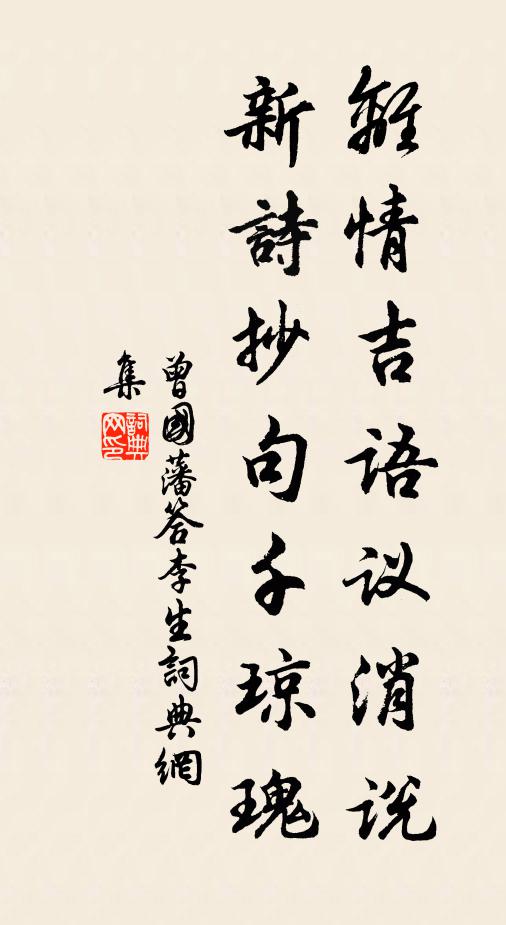 離情吉語议消说
新詩抄句千琼瑰
曾國藩答李生詞典網
集
詞典
网印